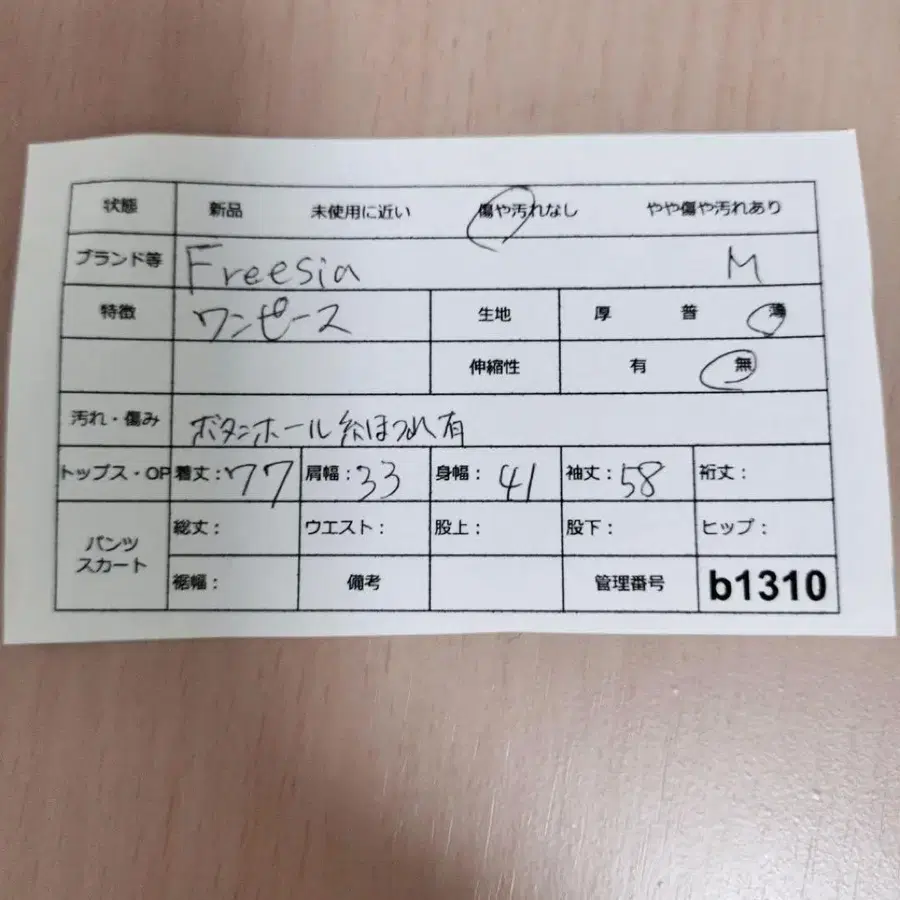 状態 新品 未使用に近い 傷や汚れなし やや傷や汚れあり
ブランド等 Freesia M
特徴 ワンピース 生地 厚 普 薄
伸縮性 有 無
汚れ・傷み ボタンホール糸ほつれ有
トップス・OP 着丈：77 肩幅：33 身幅：41 袖丈：58 裄丈：
パンツ スカート 総丈： ウエスト： 股上： 股下： ヒップ：
裾幅： 備考 管理番号 b1310